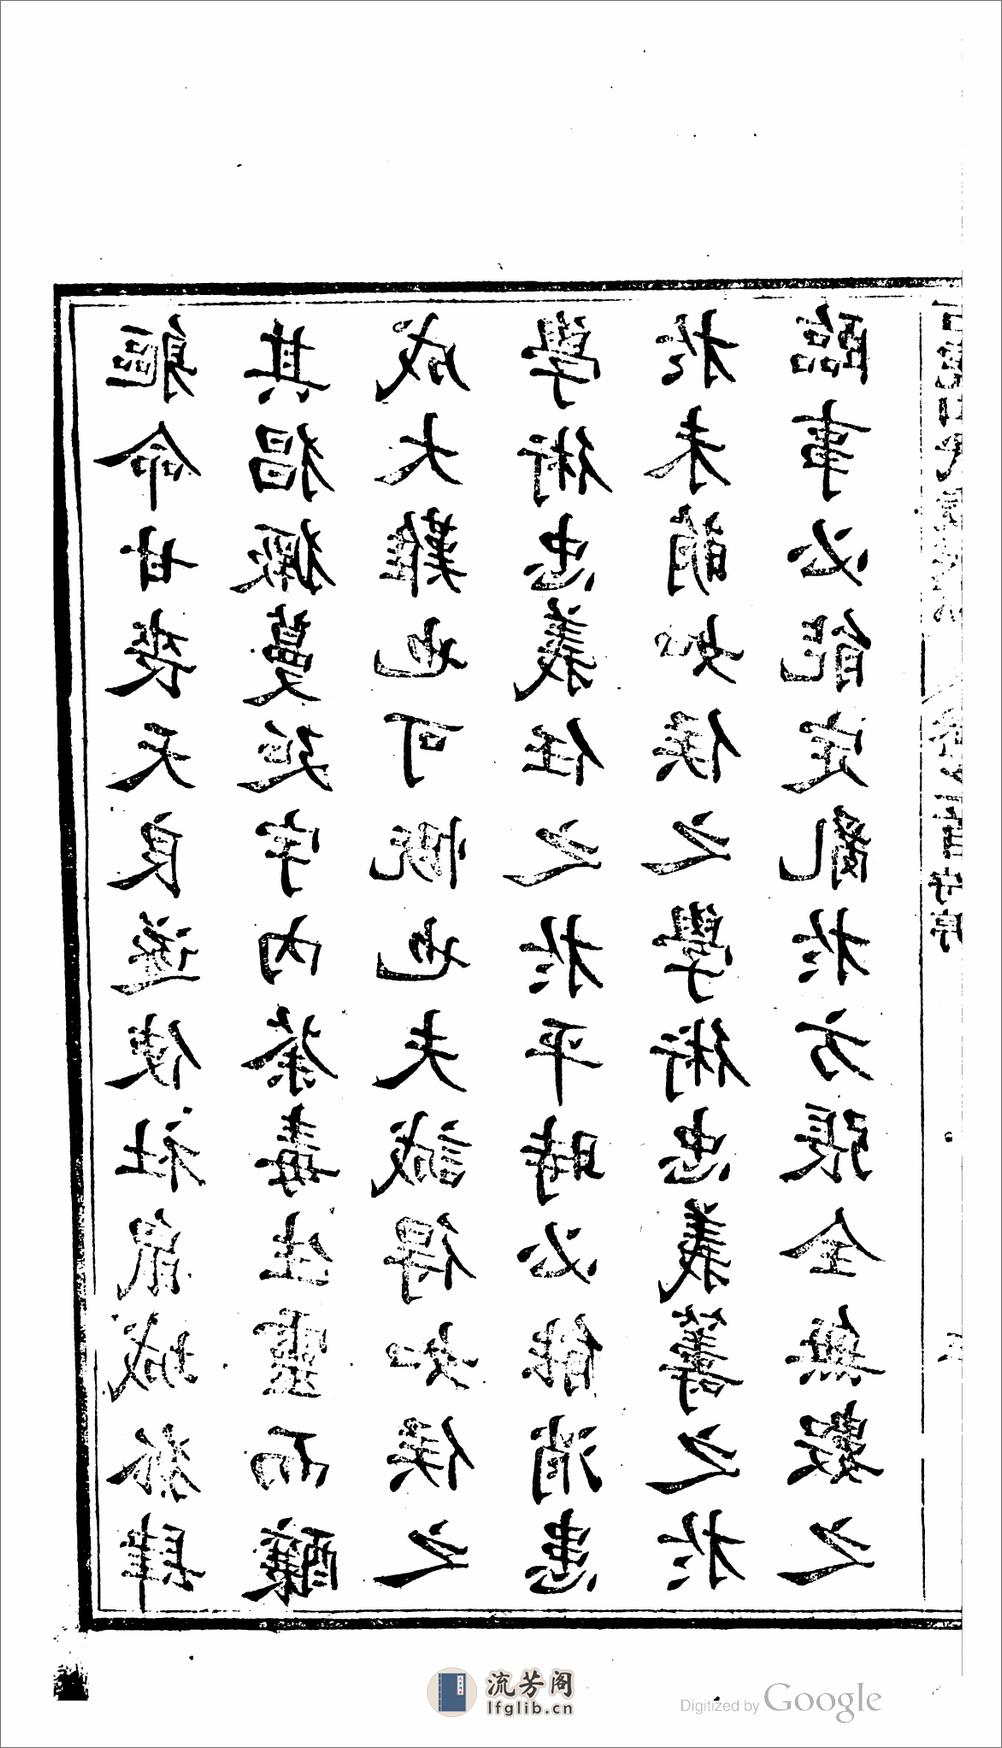 軀命甘喪天良遂使社鼠城狐肆
其猖獗蔓延宇內荼毒生靈而釀
成大難也可慨也夫誠得如侯之
學術忠義任之於平時必能消患
於未萌如侯之學術忠義籌之於
臨事必能定亂於方張全無數之
流芳阁
lfglib.cn
Digitized by Google